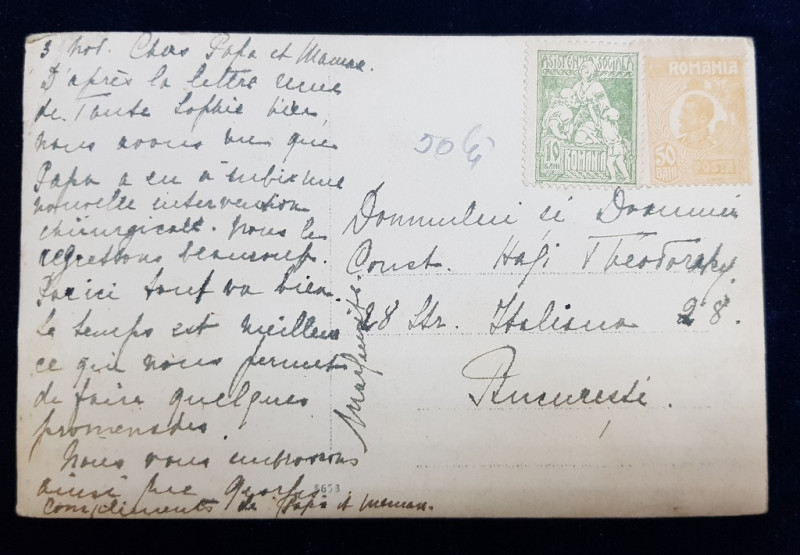 3 Nov. Chers Papa et Maman.
D'après la lettre reçue
de Tante Sophie hier,
nous avons vu que
Papa a eu à subir une
nouvelle intervention
chirurgicale. Nous le
regrettons beaucoup.
Par ici tout va bien.
Le temps est meilleur
ce qui nous permet
de faire quelques
promenades.
Nous vous embrassons
ainsi que
compliments de Papa et Maman.
50
ASISTENȚA SOCIALĂ
10
BANI
ROMANIA
ROMANIA
50
BANI
POSTA
Domnului și Doamnei
Const. Hagi Theodoraky.
28 Str. Italiana 28.
București.
8653